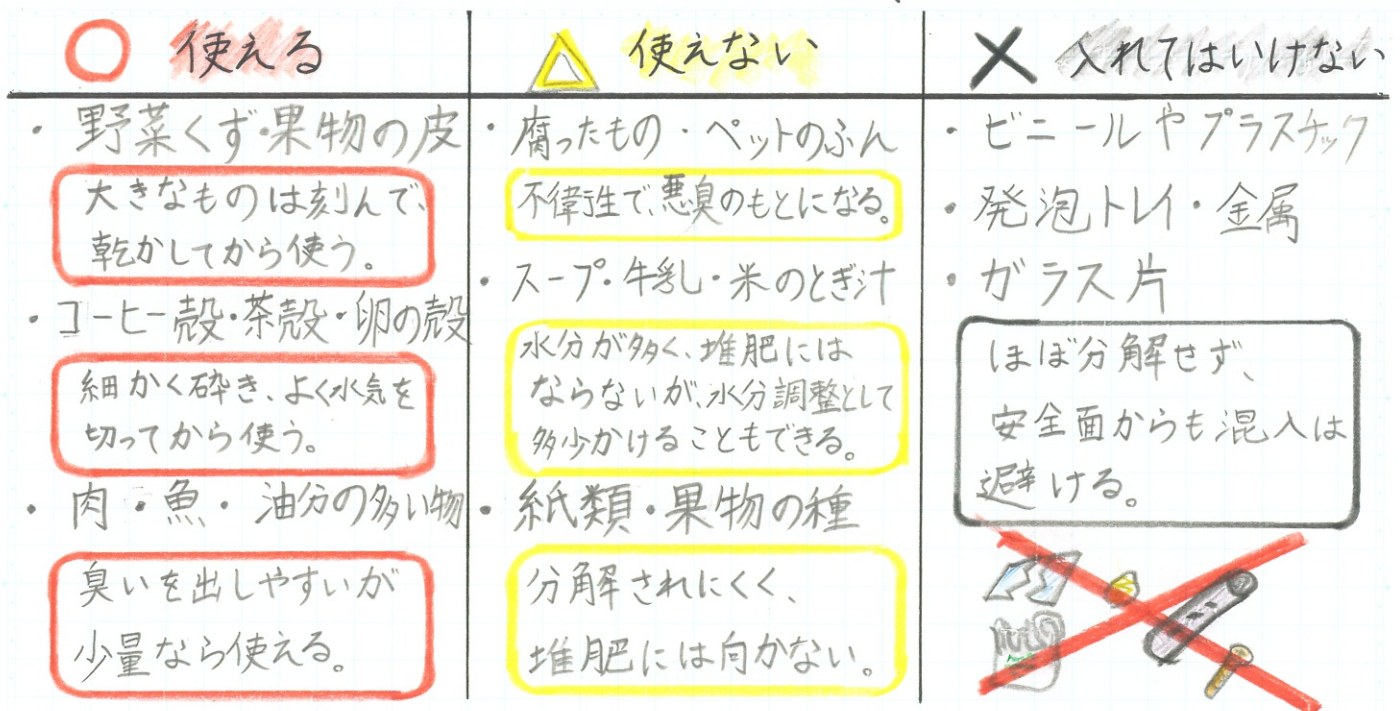 ○ 使える
・野菜くず・果物の皮
大きなものは刻んで、
乾かしてから使う。
・コーヒー殻・茶殻・卵の殻
細かく砕き、よく水気を
切ってから使う。
・肉・魚・油分の多い物
臭いを出しやすいが
少量なら使える。
△ 使えない
・腐ったもの・ペットのふん
不衛生で、悪臭のもとになる。
・スープ・牛乳・米のとぎ汁
水分が多く、堆肥には
ならないが、水分調整として
多少かけることもできる。
・紙類・果物の種
分解されにくく、
堆肥には向かない。
× 入れてはいけない
・ビニールやプラスチック
・発泡トレイ・金属
・ガラス片
ほぼ分解せず、
安全面からも混入は
避ける。